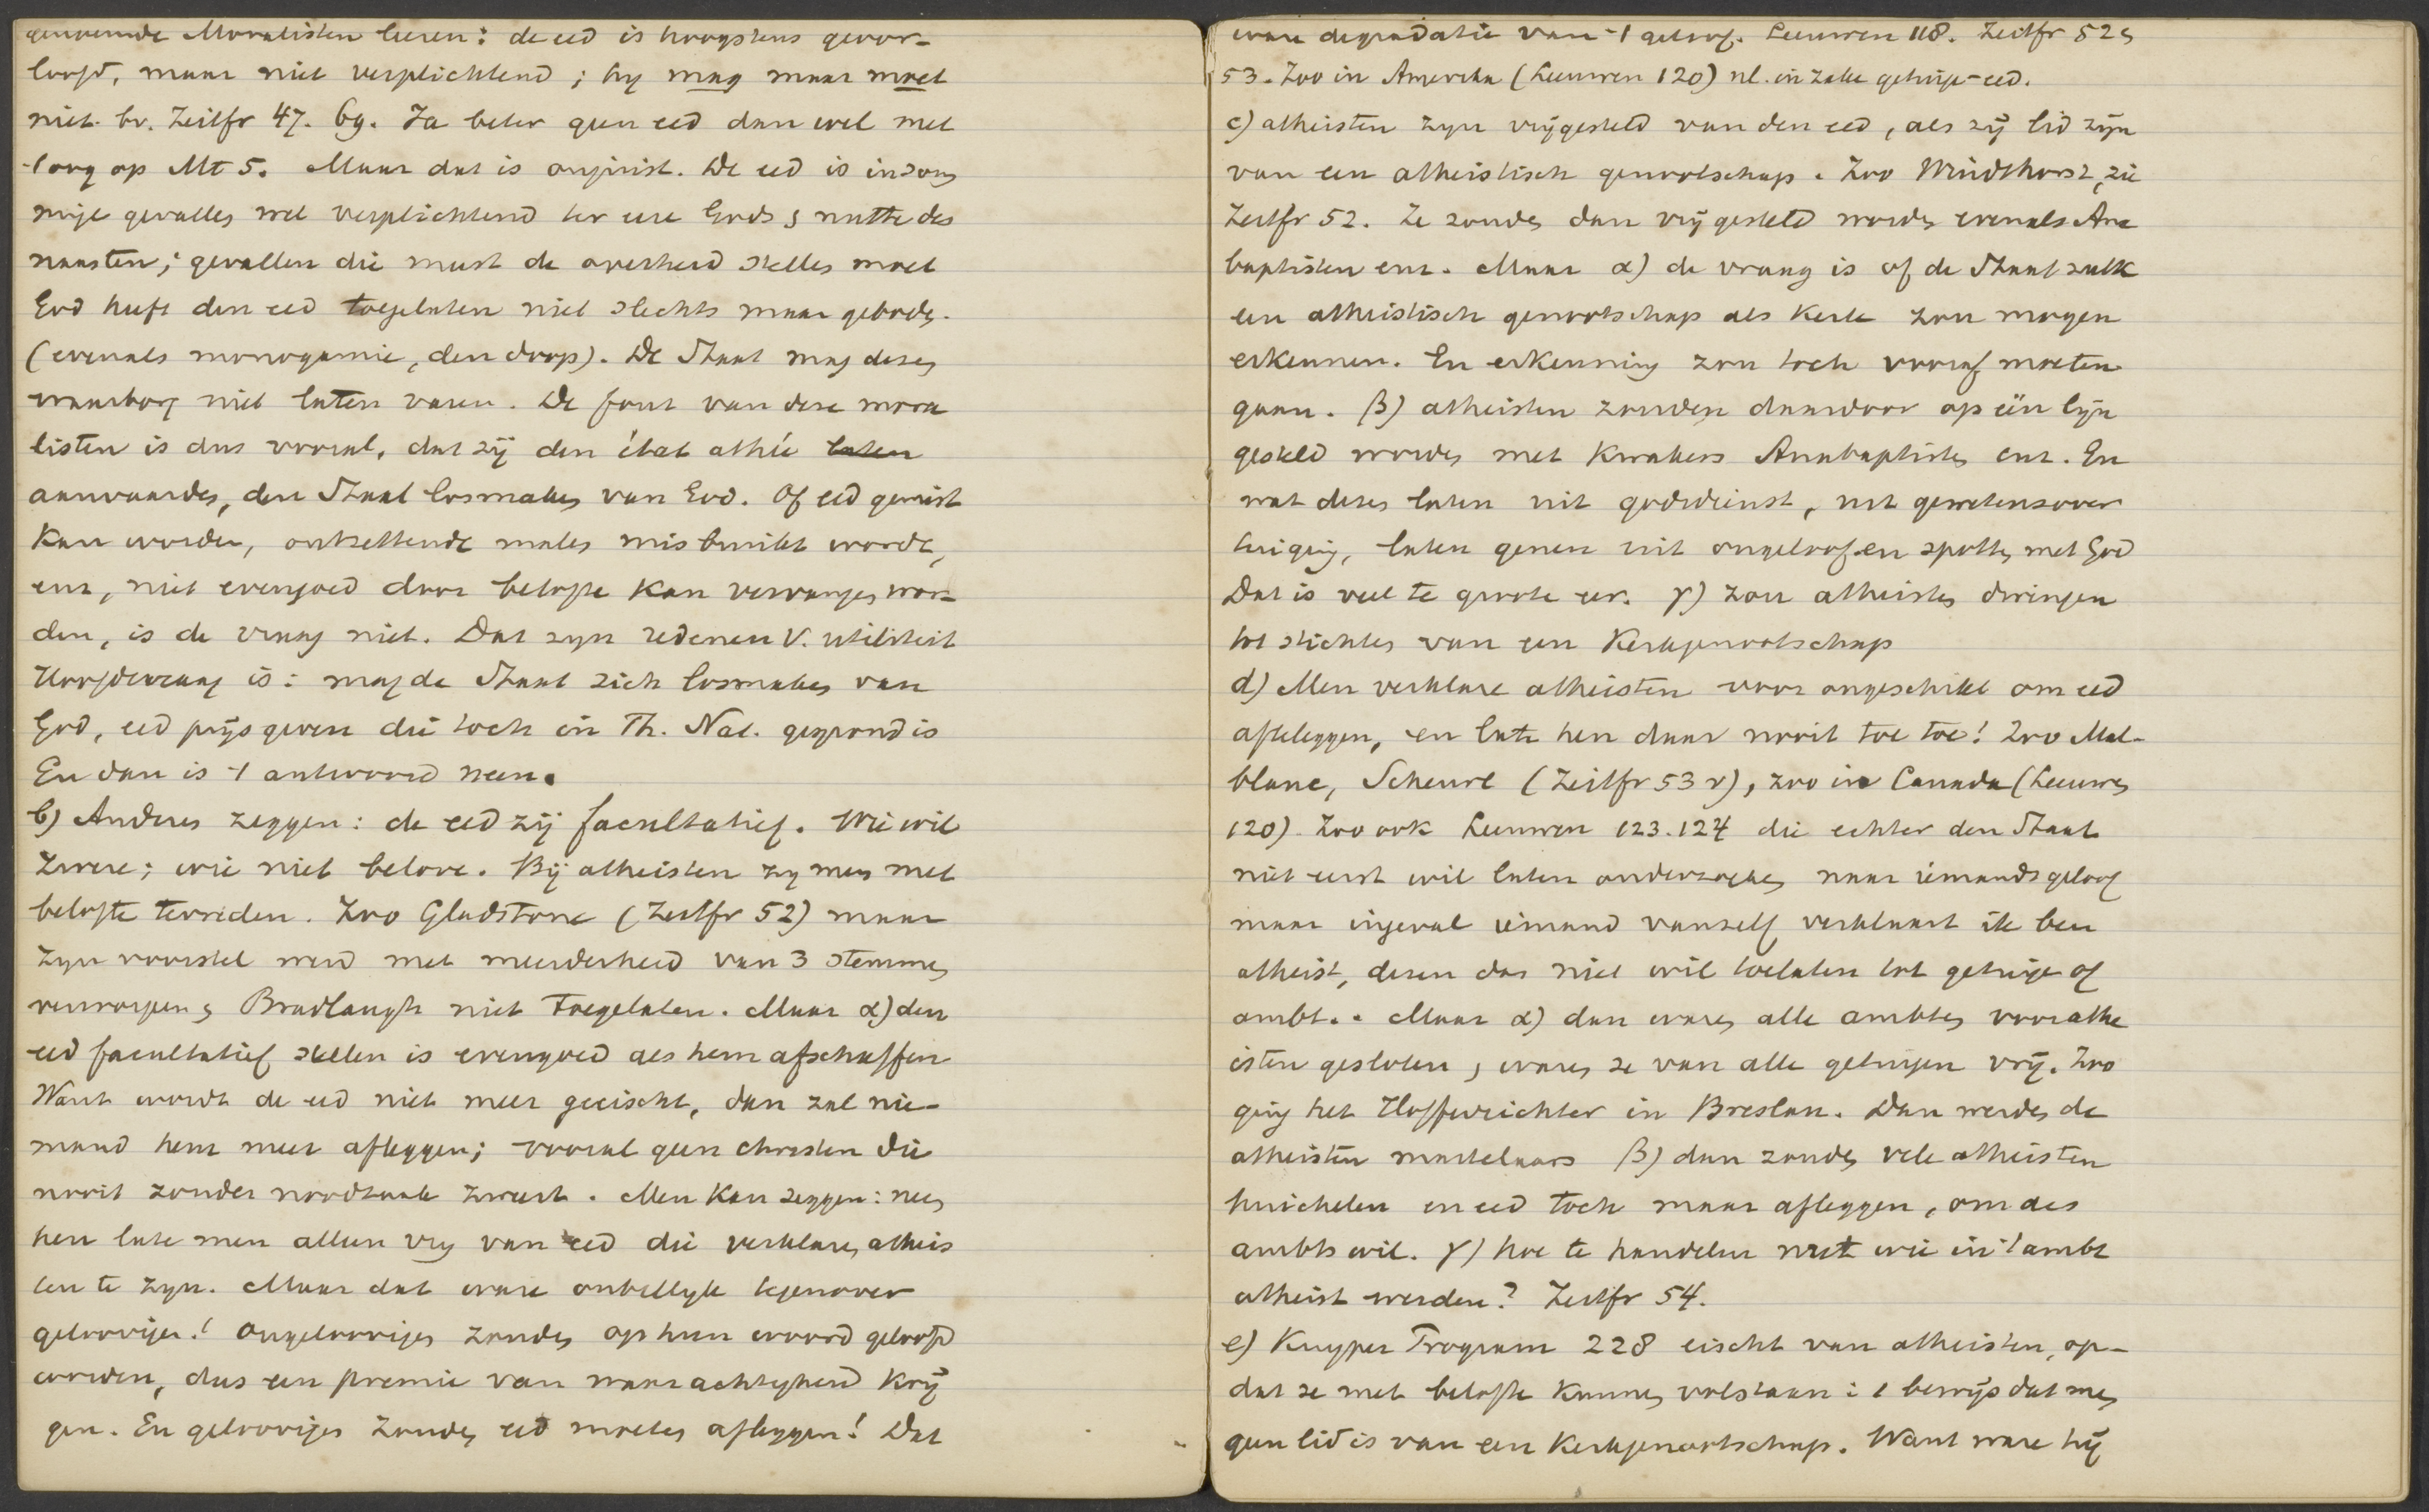 genoemde Moralisten leeren: de eed is hoogstens geoor-
loofd, maar niet verplichtend; hy mag maar moet
niet. bv. Zeitfr 47. 69. Ja beter geen eed dan wel met
't oog op Mt 5. Maar dat is onjuist. De eed is in som
mige gevallen wel verplichtend ter eere Gods & nutte des
naasten; gevallen die meest de overheid stellen moet
God heeft den eed toegelaten niet slechts maar geboden.
(evenals monogamie, den doop). De Staat mag dezen
waarborg niet laten varen. De fout van deze mora
listen is dus vooral, dat zij den état athée laten
aanvaarden, den Staat losmaken van God. Of eed gemist
kan worden, ontzettende malen misbruikt wordt,
enz, niet evengoed door belofte kan vervangen wor-
den, is de vraag niet. Dat zyn redenen v. utiliteit
Hoofdvraag is: mag de Staat zich losmaken van
God, eed prijs geven die toch in Th. Nat. gegrond is
En dan is 't antwoord neen.
b) Anderen zeggen: de eed zij facultatief. Wie wil
zwere; wie niet belove. Bij atheisten zy men met
belofte tevreden. Zoo Gladstone (Zeitfr 52) maar
zyn voorstel werd met meerderheid van 3 stemmen
verworpen & Bradlaugh niet toegelaten. Maar α) den
eed facultatief stellen is evengoed als hem afschaffen
Want wordt de eed niet meer geeischt, dan zal nie-
mand hem meer afleggen; vooral geen christen die
nooit zonder noodzaak zweert. Men kan zeggen: neen
hen late men alleen vry van eed die verklaren atheis
ten te zyn. Maar dat ware onbillyk tegenover
geloovigen! ongeloovigen zouden op hun woord geloofd
worden, dus een premie van waarachtigheid krij
gen. En geloovigen zouden eed moeten afleggen! Dat
ware degradatie van 't geloof. Leeuwen 118. Zeitfr 52 &
53. Zoo in Amerika (Leeuwen 120) nl. in zake getuige-eed.
c) atheisten zyn vrijgesteld van den eed, als zij lid zijn
van een atheistisch genootschap. Zoo Windthorst, zie
Zeitfr 52. Ze zouden dan vrij gesteld worden evenals Ana
baptisten enz. Maar α) de vraag is of de Staat zulk
een atheistisch genootschap als kerk zou mogen
erkennen. En erkenning zou toch vooraf moeten
gaan. β) atheisten zouden daardoor op één lijn
gesteld worden met Kwakers Anabaptisten enz. En
wat dezen laten uit godsdienst, uit gewetensover
tuiging, laten genen uit ongeloof en spotten met God
Dat is veel te groote eer. γ) zou atheisten dwingen
tot stichten van een Kerkgenootschap
d) Men verklare atheisten voor ongeschikt om eed
afteleggen, en late hen daar nooit toe toe! Zoo Mal-
blanc, Scheurl (Zeitfr 53 v), zoo in Canada (Leeuwen
120). Zoo ook Leeuwen 123. 124 die echter den Staat
niet eerst wil laten onderzoeken naar iemands geloof
maar ingeval iemand vanzelf verklaart ik ben
atheist, dezen dan niet wil toelaten tot getuige of
ambt. Maar α) dan waren alle ambten voor athe
isten gesloten, waren ze van alle getuigen vrij. Zoo
ging het Hofferichter in Breslau. Dan werden de
atheisten martelaars β) dan zouden vele atheisten
huichelen en eed toch maar afleggen, om des
ambts wil. γ) hoe te handelen met wie in 't ambt
atheist werden? Zeitfr 54.
e) Kuyper Program 228 eischt van atheisten, op-
dat ze met belofte kunnen volstaan: 1 bewijs dat men
geen lid is van een Kerkgenootschap. Want ware hij